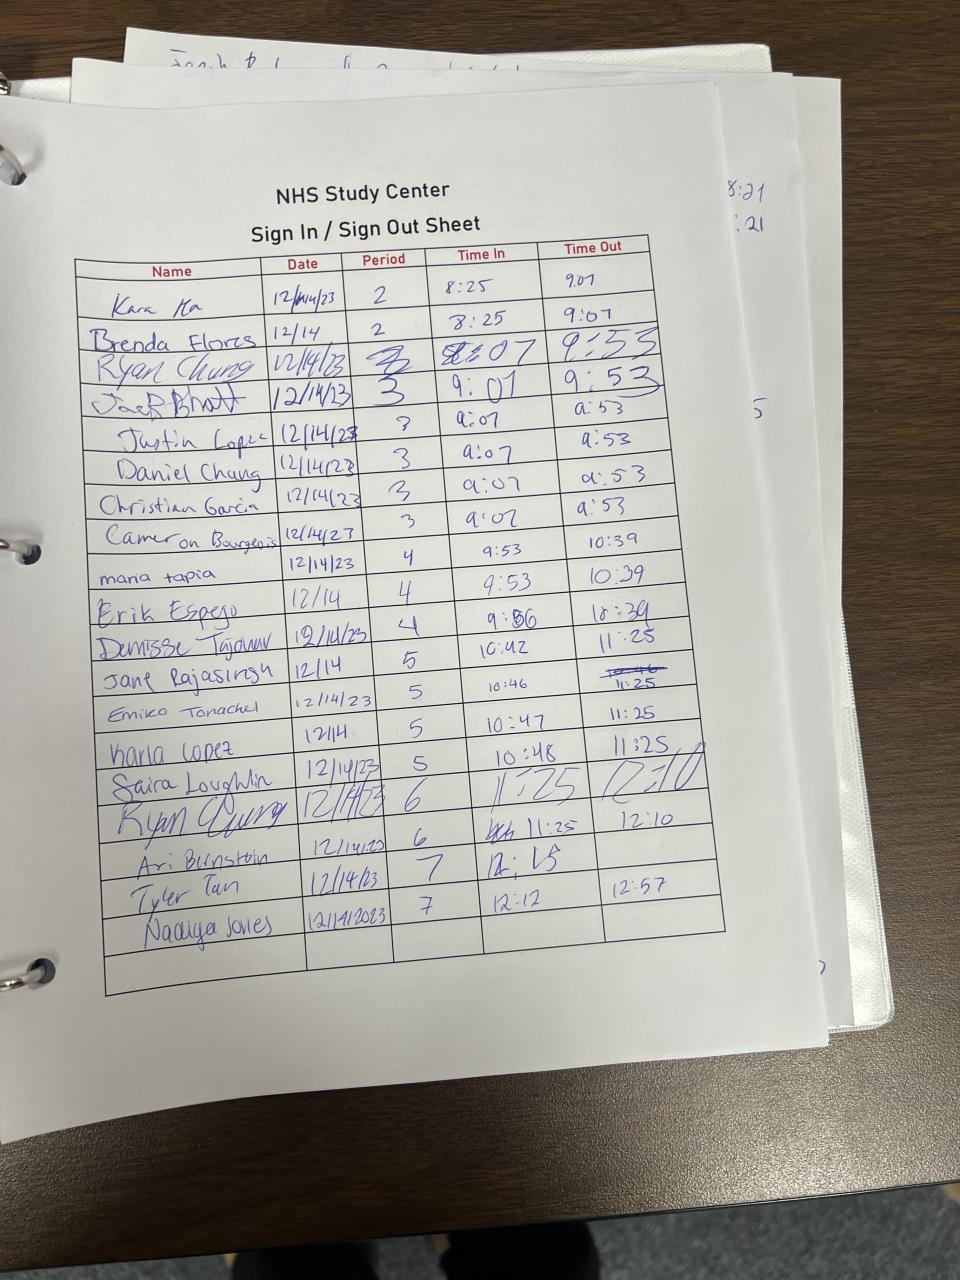 NHS Study Center
Sign In / Sign Out Sheet
Name Date Period Time In Time Out
Kara Ha 12/14/23 2 8:25 9:07
Brenda Flores 12/14 2 8:25 9:07
Ryan Chung 12/14/23 3 9:07 9:53
Jack Bhatt 12/14/23 3 9:07 9:53
Justin Lopez 12/14/23 3 9:07 9:53
Daniel Chang 12/14/23 3 9:07 9:53
Christian Garcia 12/14/23 3 9:07 9:53
Cameron Bourgeois 12/14/23 3 9:07 9:53
maria tapia 12/14/23 4 9:53 10:39
Erik Espejo 12/14 4 9:53 10:39
12/14/23 4 9:56 10:39
Jane Rajasingh 12/14 5 10:42 11:25
Emiko Tonachel 12/14/23 5 10:46 10:46 11:25
Karla Lopez 12/14 5 10:47 11:25
Saira Loughlin 12/14/23 5 10:48 11:25
Ryan Chung 12/14/23 6 11:25 12:10
Ari 12/14/23 6 11:25 12:10
Tyler Tan 12/14/23 7 12:15
Nadiya Jones 12/14/2023 7 12:12 12:57
8:21
:21
5